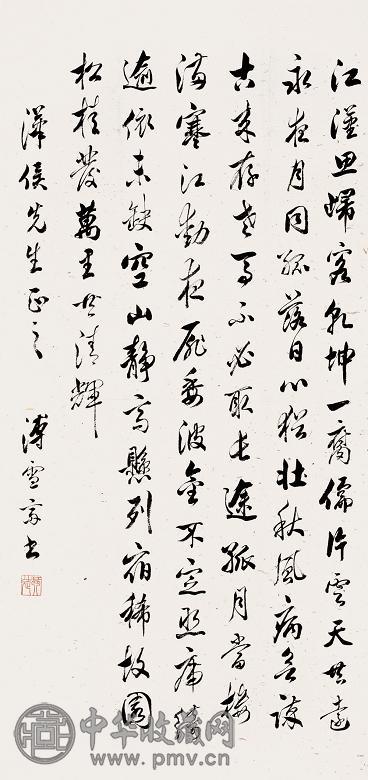 江漢思歸客乾坤一腐儒片雲天共遠
永夜月同孤落日心猶壯秋風病欲蘇
古來存老馬不必取長途孤月當樓
滿寒江動夜扉委波金不定照席綺
逾依未缺空山靜高懸列宿稀故園
松桂發萬里共清輝
侯先生正之 溥雪齋書
中华收藏网
www.pmv.cn